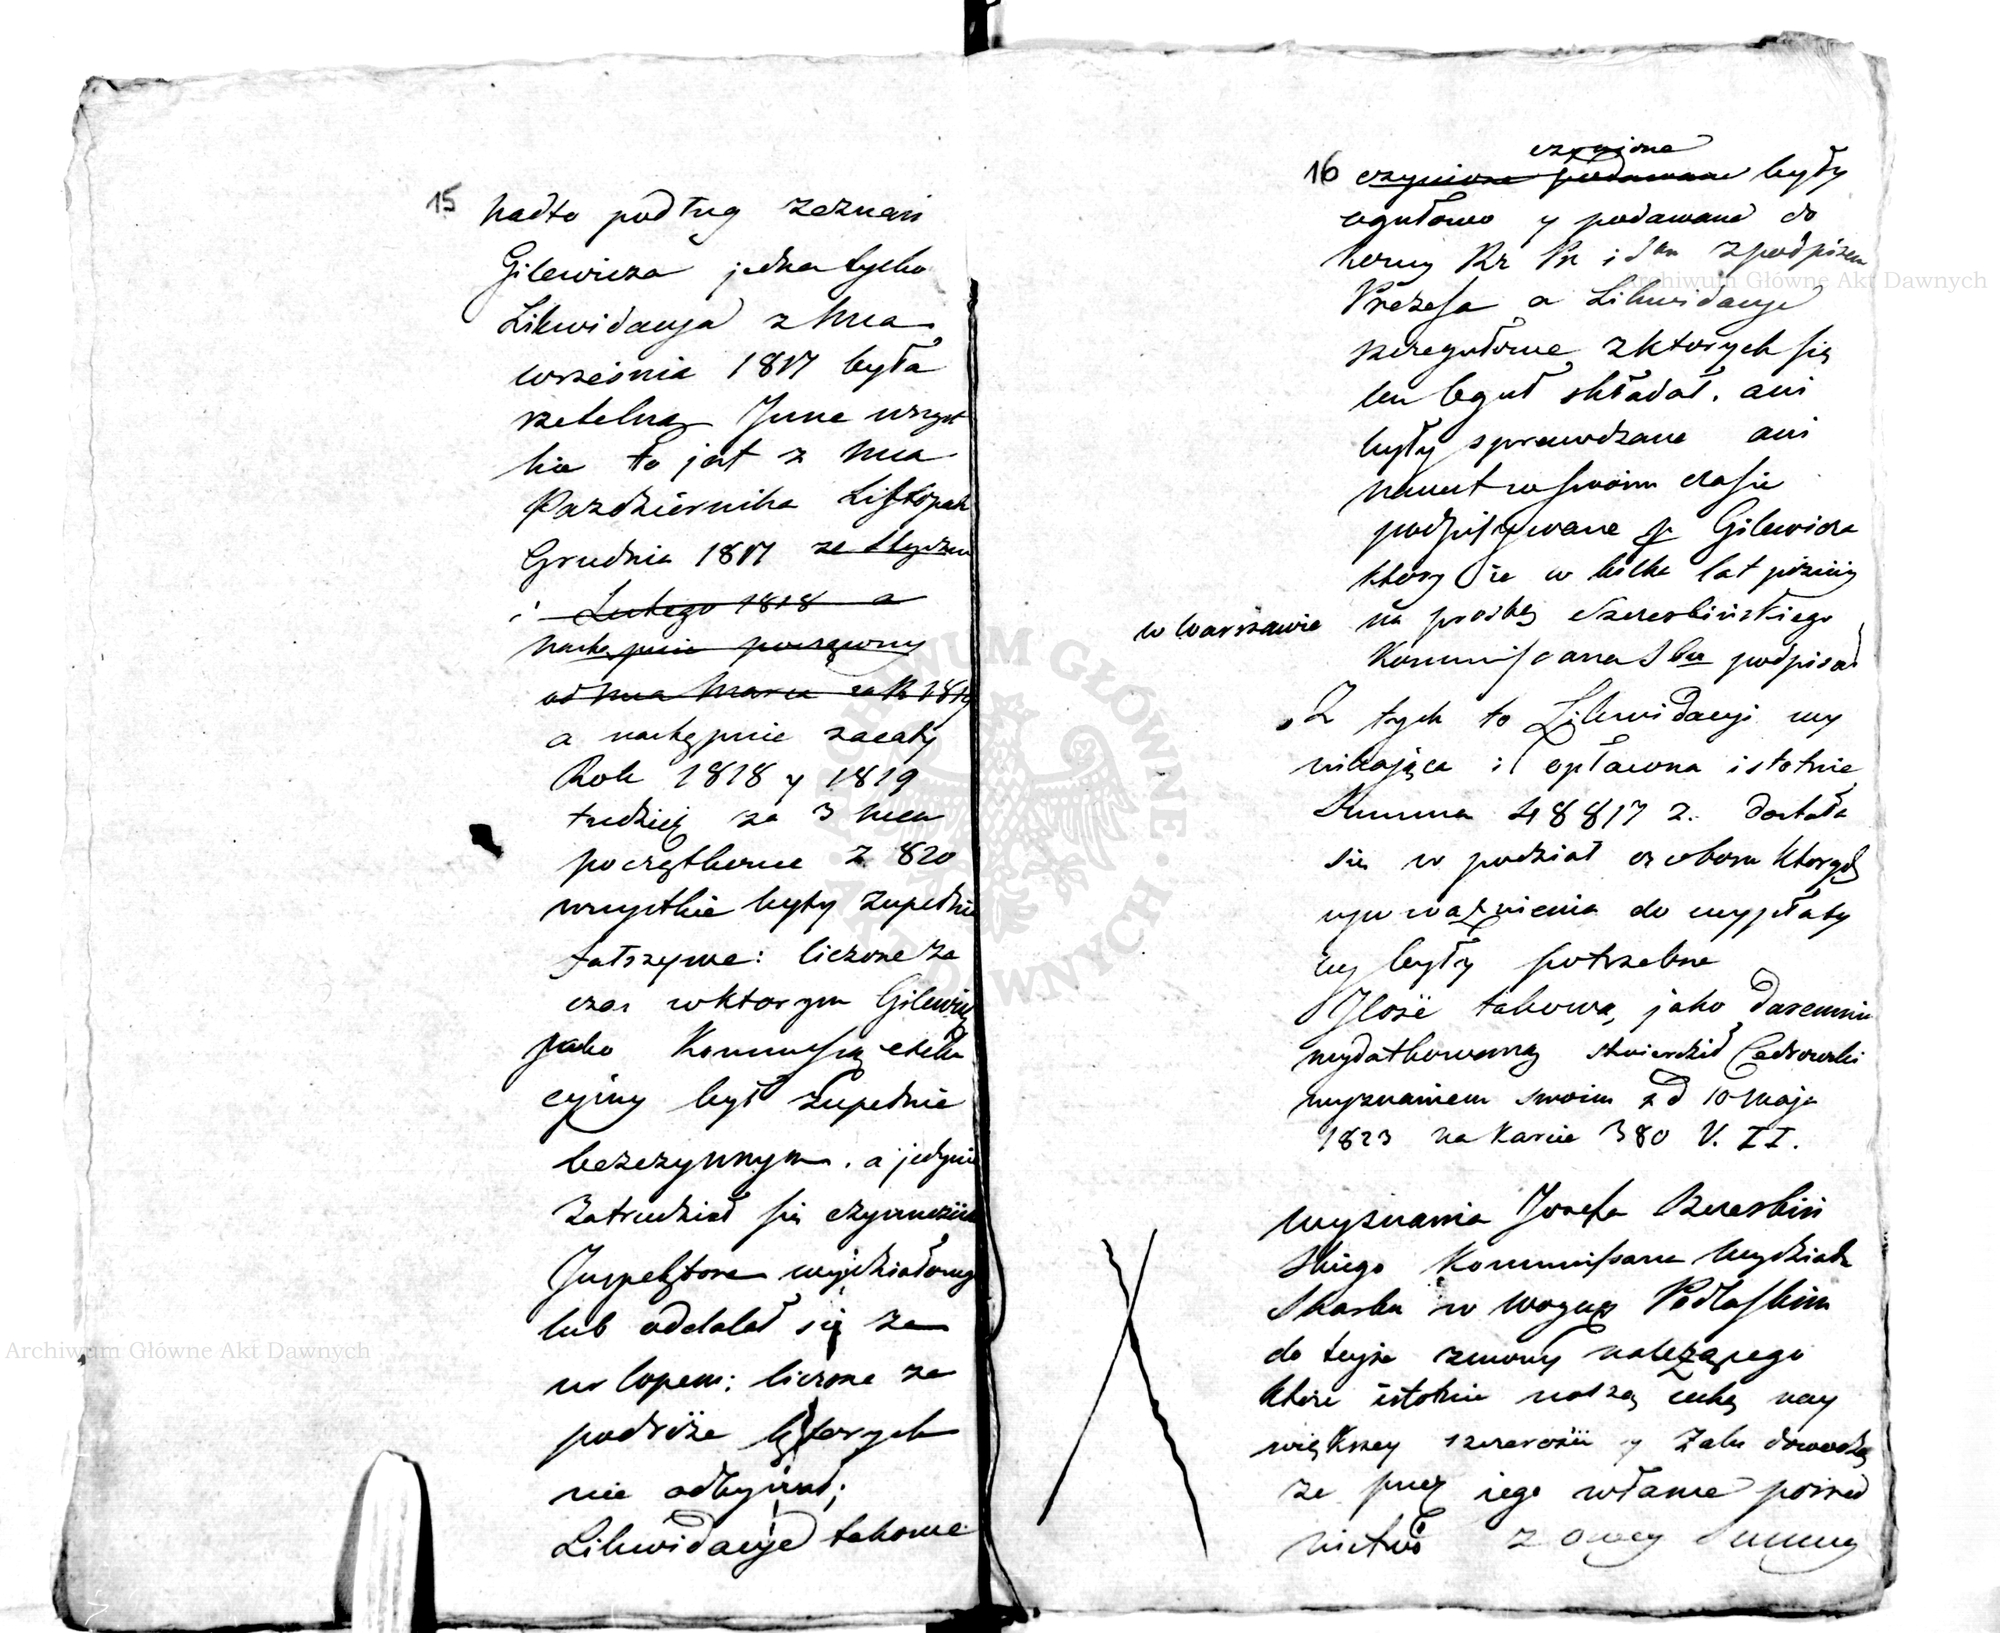 15
nadto podług zeznań
Gilewicza jedna tylko
Likwidacya z Mca
września 1817 była
rzetelną Inne wszyst
kie to jest z Mca
Pazdziernika Listopada
Grudnia 1817 ze Stycznia
i Lutego 1818 a
następnie począwszy
od Mca Marca za R. 1819
a następnie zacały
Rok 1818 y 1819
tudzież za 3 Mce
początkowe z 820
wszystkie były zupełnie
fałszywe: liczone za
czas wktorym Gilewicz
jako Kommissarz
cyjny był zupełnie
bezczynnym. a jedynie
Zatrudniał się czynnościa
Inspektora wydziałowego
lub oddalał się za
urlopem; liczone za
podróże których
nie odbywał;
Likwidacye takowe
16
czynione
czynione podawane były
ogułowo y podawane do
Kr Pr i z podpisem
Prezesa a Likwidacye
szczegułowe z ktorych się
ten oguł składał. ani
były sprawdzane ani
nawet w swoim czasie
podpisywane p Gilewicza
ktory że w kilka lat pozniey
w Warszawie
na prozbę Szeresbińskiego
Kommissarza Sbu podpisał
Z tych to Likwidacyi wy
nikająca i opłacona istotnie
Summa 48817 z. dostała
się w podział osobom ktorych
upoważnienia do wypłaty
były potrzebne
Ilość takową, jako daremnie
wydatkowaną stwierdził Cedrowski
wyznaniem swoim z d 10 Maja
1823 na Karcie 380 V. II.
wyznania Jozefa Szeresbiń
Skiego Kommissarza Wydziału
Skarbu w Wojew Podlaskim
do teyże zmowy należącego
które istotnie noszą cechę nay
większey szczerości y żalu dowodzą
że przez iego własne pośred
nictwo z owey Summy